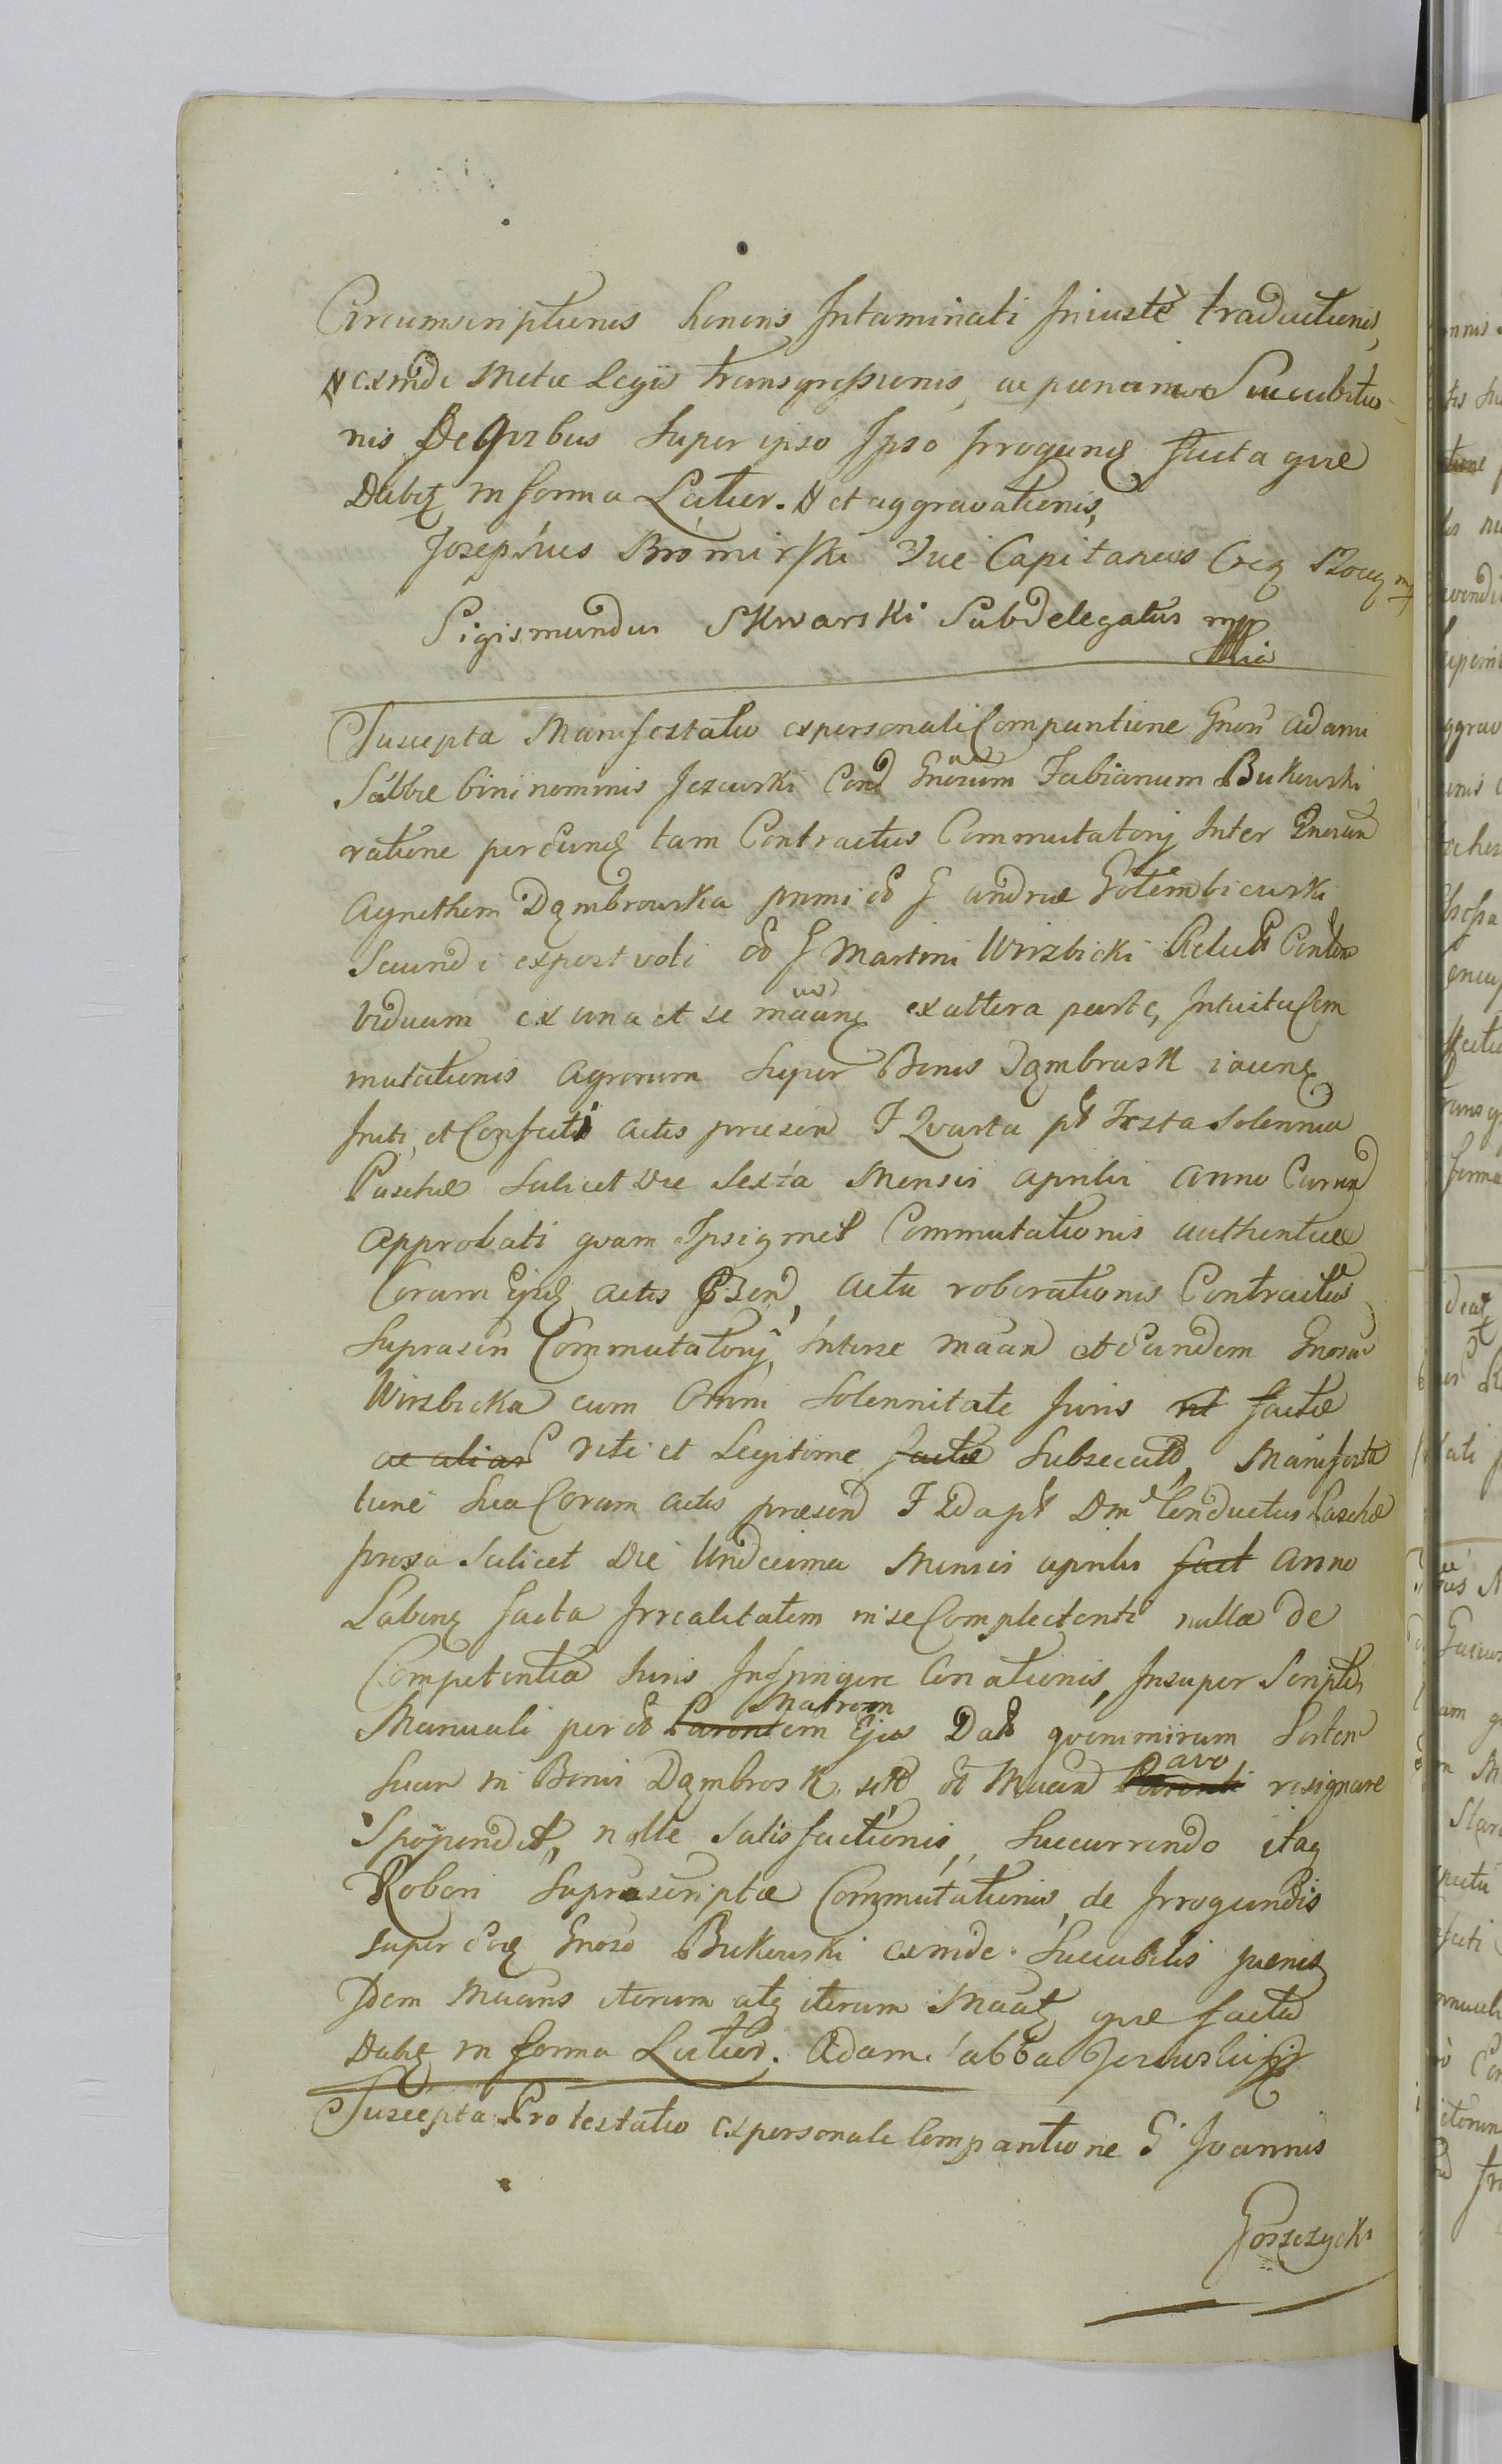 Circumscriptionis honoris Intaminati Iniustè traductionis,
N exinde Metae Legis transgressionis, ac paenarum Succubitio-
nis De Qvibus Super ipso Ipso Irrogang facta que
Dabitz in forma Latior. N et aggravationis,
Josephus Bromirski Vice Capitaneus
Sigismundus Skwarski Subdelegatus mp
Suscepta Manifestatio ex personali Comparitione Gnosi Adami
Sabbae bini nominis Jezewski Cond Gnosum Fabianum Bukowski
ratione per eung tam Contractus Commutatory Inter Gnosam
Agnethem Dąmbrowska primi od G Andreae Gołembiewski
Secundi ex post voti od G Martini Wirzbicki Relict Consor
Viduam ex una et se maang ex altera parte, Intuitu Com
mutationis Agrorum Super Bonis Dąmbrusk
Initi, et Confecti actis praesen F Qvarta pt Festa Solennia
Paschae Scilicet Die Sexta Mensis Aprilis Anno Curren
Approbati qvam Ipsiqmet Commutationis authenticae
Coram Ejusd actis Pzen, actu roborationis Contractus
Suprascri Commutatory, Interse maan et Eandem Gnosa
Wirzbicka cum Omni Solennitate Juris ut factae
ac alias rite et Legitime factae Subsecuto, Manifesta
tione Sua Coram actis praesen F 2da pt Dmc Conductus Paschae
proxa Scilicet Die Undecima Mensis Aprilis fact Anno
Labeng facta Irrealitatem in se Complectente nullae De
Competentia Iuris Infringere Conationis, Insuper Scripti
Manuali per od Parentem Matrem Ejus Dat qvenimirum Sortem
Suam in Bonis Dąmbrosk sit od Maan Parenti avo resignare
Spopondit, nolle Satisfactionis, Succurrendo itaq
Robori Suprascriptae Commutationis, de Irrogandis
super Eoq Gnoso Bukowski exinde Succubilis paenis
Idem Maans iterum atq iterum Maatz que facta
Dabz in forma Latior. Adam Sabba Jezewski
Suscepta Protestatio ex personale Comparitione G Joannis
Goszczycki